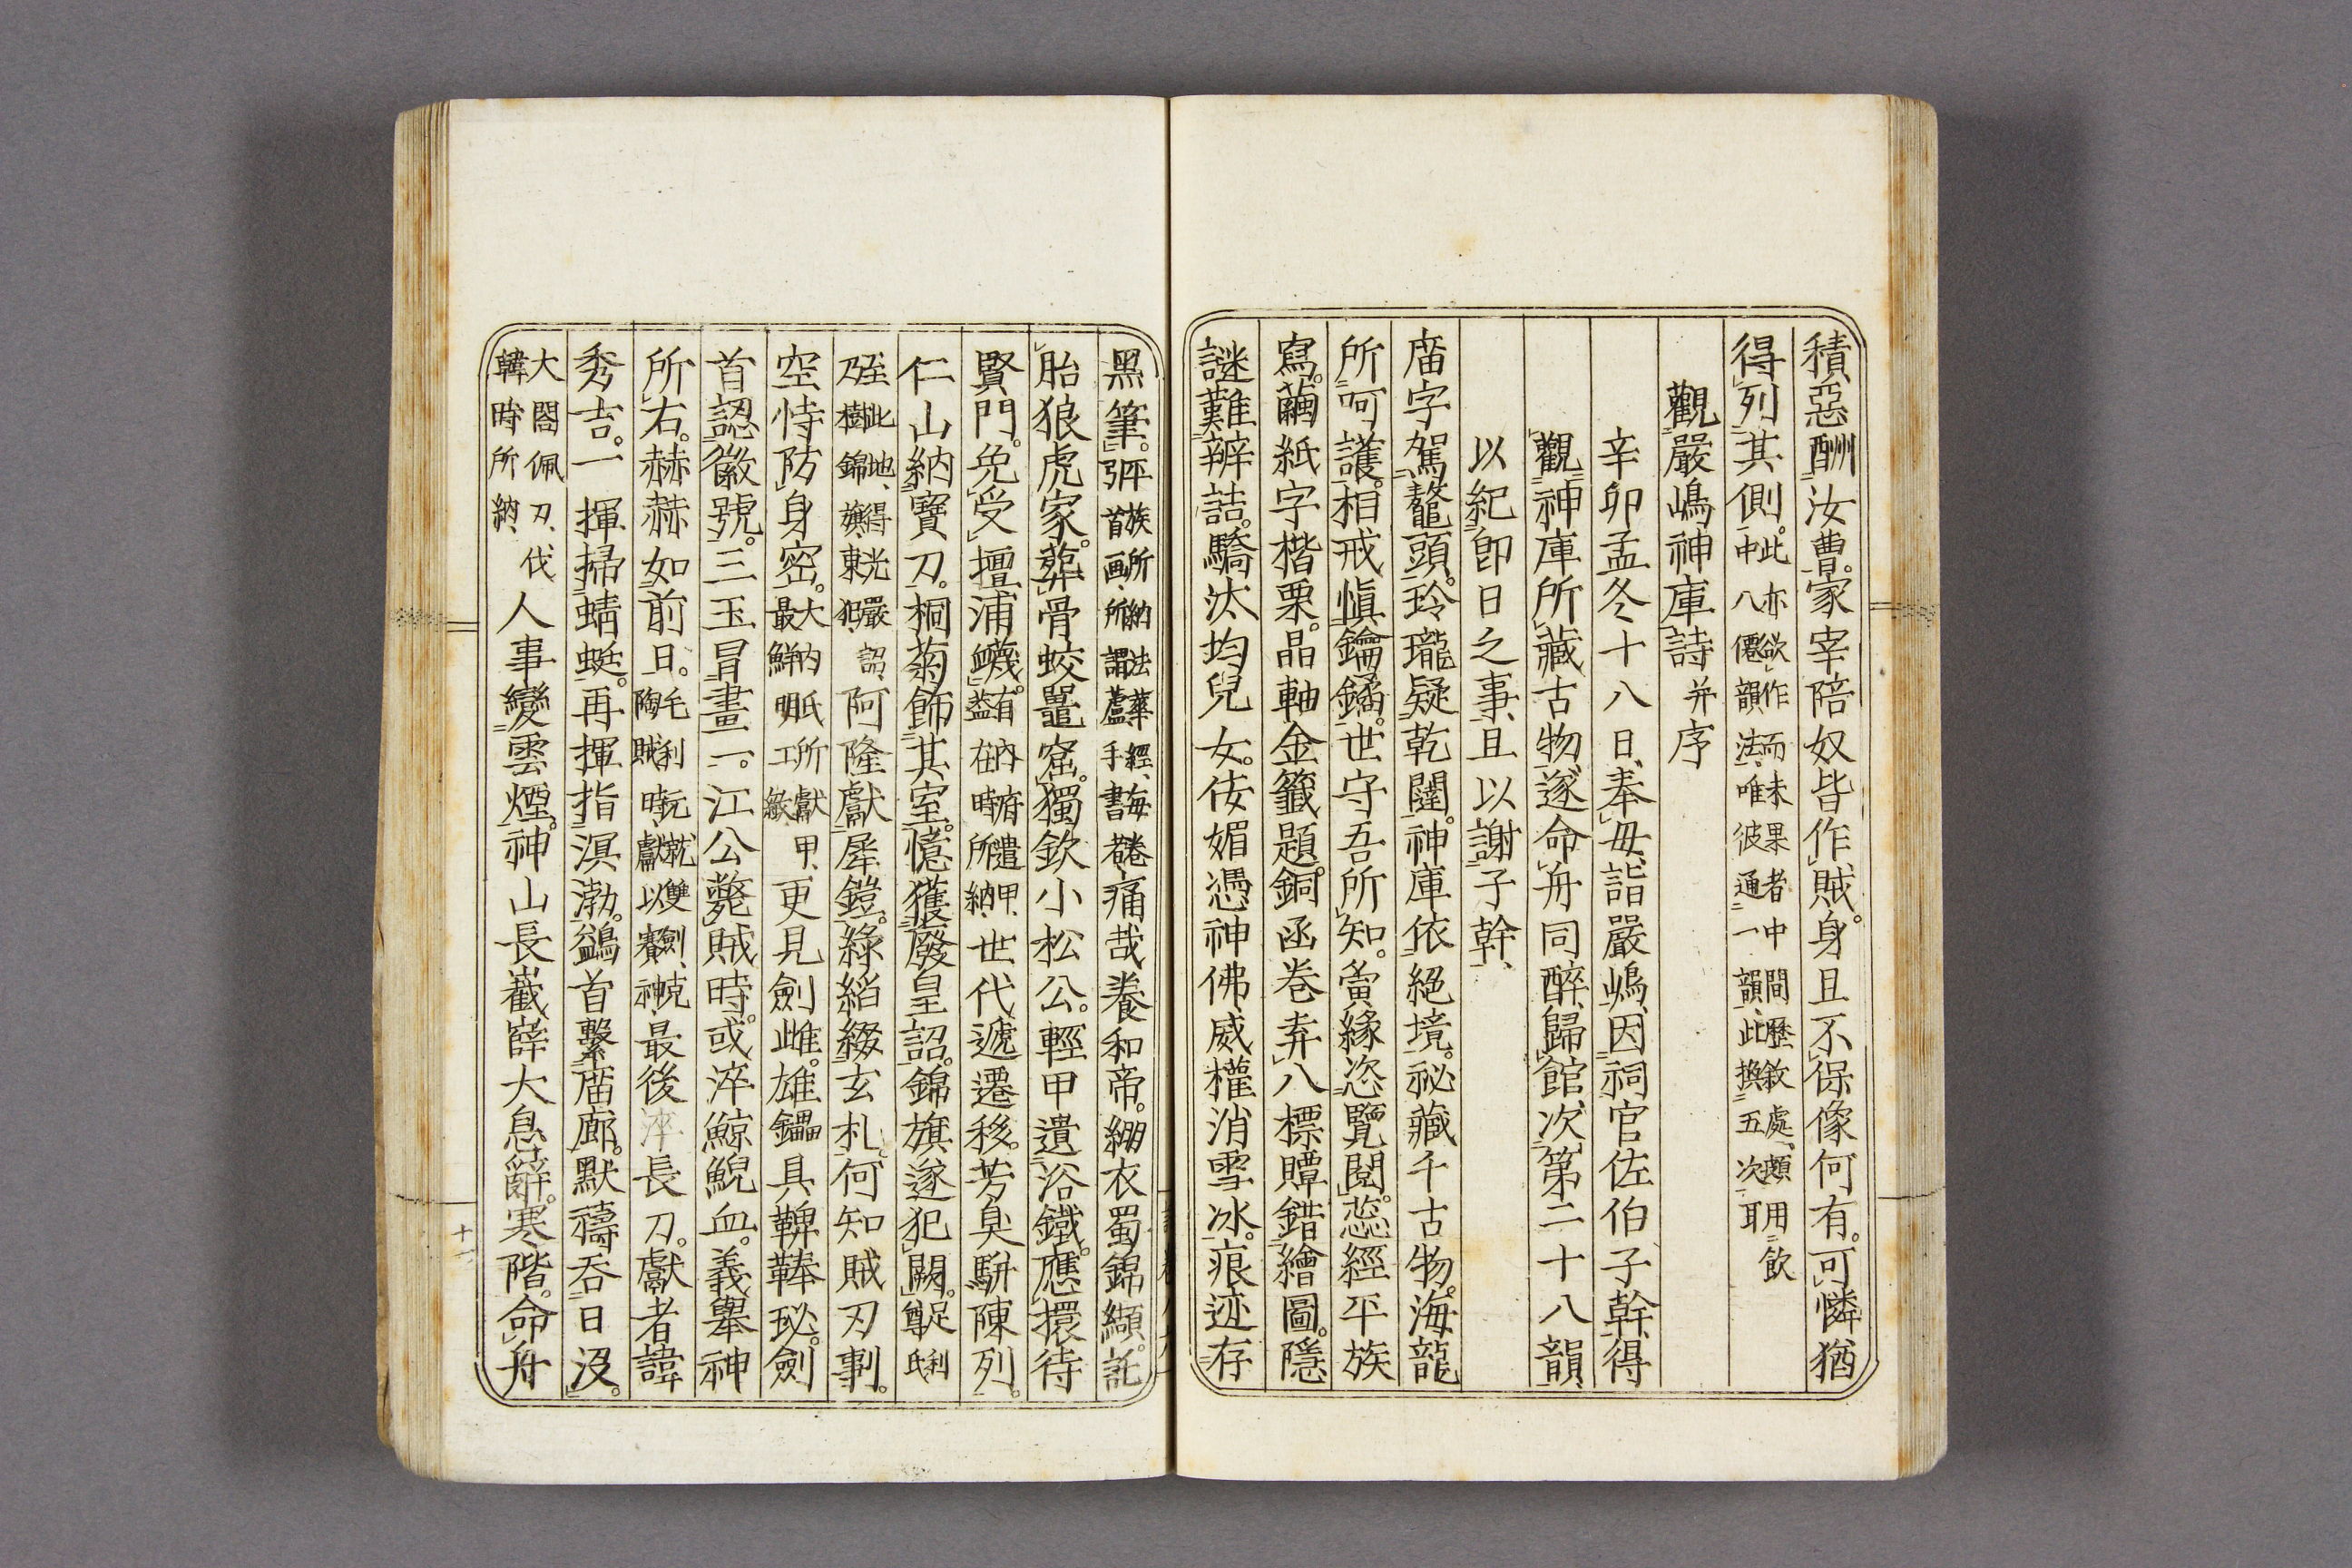 積惡酬汝曹。家宰陪奴皆作賊。身且不保像何有。可憐猶
得列其側。此亦欲作而未果者中間歷敘處、頗用飮
中八僊韻法、唯彼通一韻、此換五次耳
觀嚴嶋神庫詩并序
辛卯孟冬十八日、奉母、詣嚴嶋、因祠官佐伯子幹、得
觀神庫所藏古物、遂命舟同醉、歸館次、第二十八韻、
以紀卽日之事、且以謝子幹、
庿宇駕鼇頭。玲瓏疑乾闥。神庫依絕境。祕藏千古物。海龍
所呵護。相戒愼鑰鐍。世守吾所知。夤緣恣覽閱。蕊經平族
寫。繭紙字楷栗。晶軸金籤題。銅函卷弆八。標贉錯繪圖。隱
謎難辨詰。驕汰均兒女。佞媚憑神佛。威權消雪冰。痕迹存
黑筆。平族所納法華經、每卷
弴首画、所謂蘆手書者、痛哉養和帝。繃衣蜀錦纈。託
胎狼虎家。葬骨蛟鼉窟。獨欽小松公。輕甲遺浴鐵。應擐待
賢門。免受擅浦衊。有內府遣甲、
盖在時所納、世代遞遷移。芳臭駢陳列。
仁山納寶刀。桐菊飾其室。憶獲廢皇詔。錦旗遂犯闕。足利
尊氏
至此地、得光嚴詔、
乃樹錦旗、東犯、阿隆獻犀鎧。綠縚綴玄札。何知賊刃剚。
空恃防身密。大內氏所獻甲、
最鮮明工緻、更見劍雌雄。鑘具鞞鞛珌。劍
首認徽號。三玉冐畫一。江公斃賊時。或淬鯨鯢血。義舉神
所右。赫赫如前日。毛利元就、雙劍、克
陶賊時、獻以賽神、最後淬長刀。獻者諱
秀吉。一揮掃蜻蜓。再揮指溟渤。鷁首繫庿廊。默禱呑日沒。
大閤佩刀、伐
韓時所納、人事變雲煙。神山長嶻嶭大息辭寒階。命舟